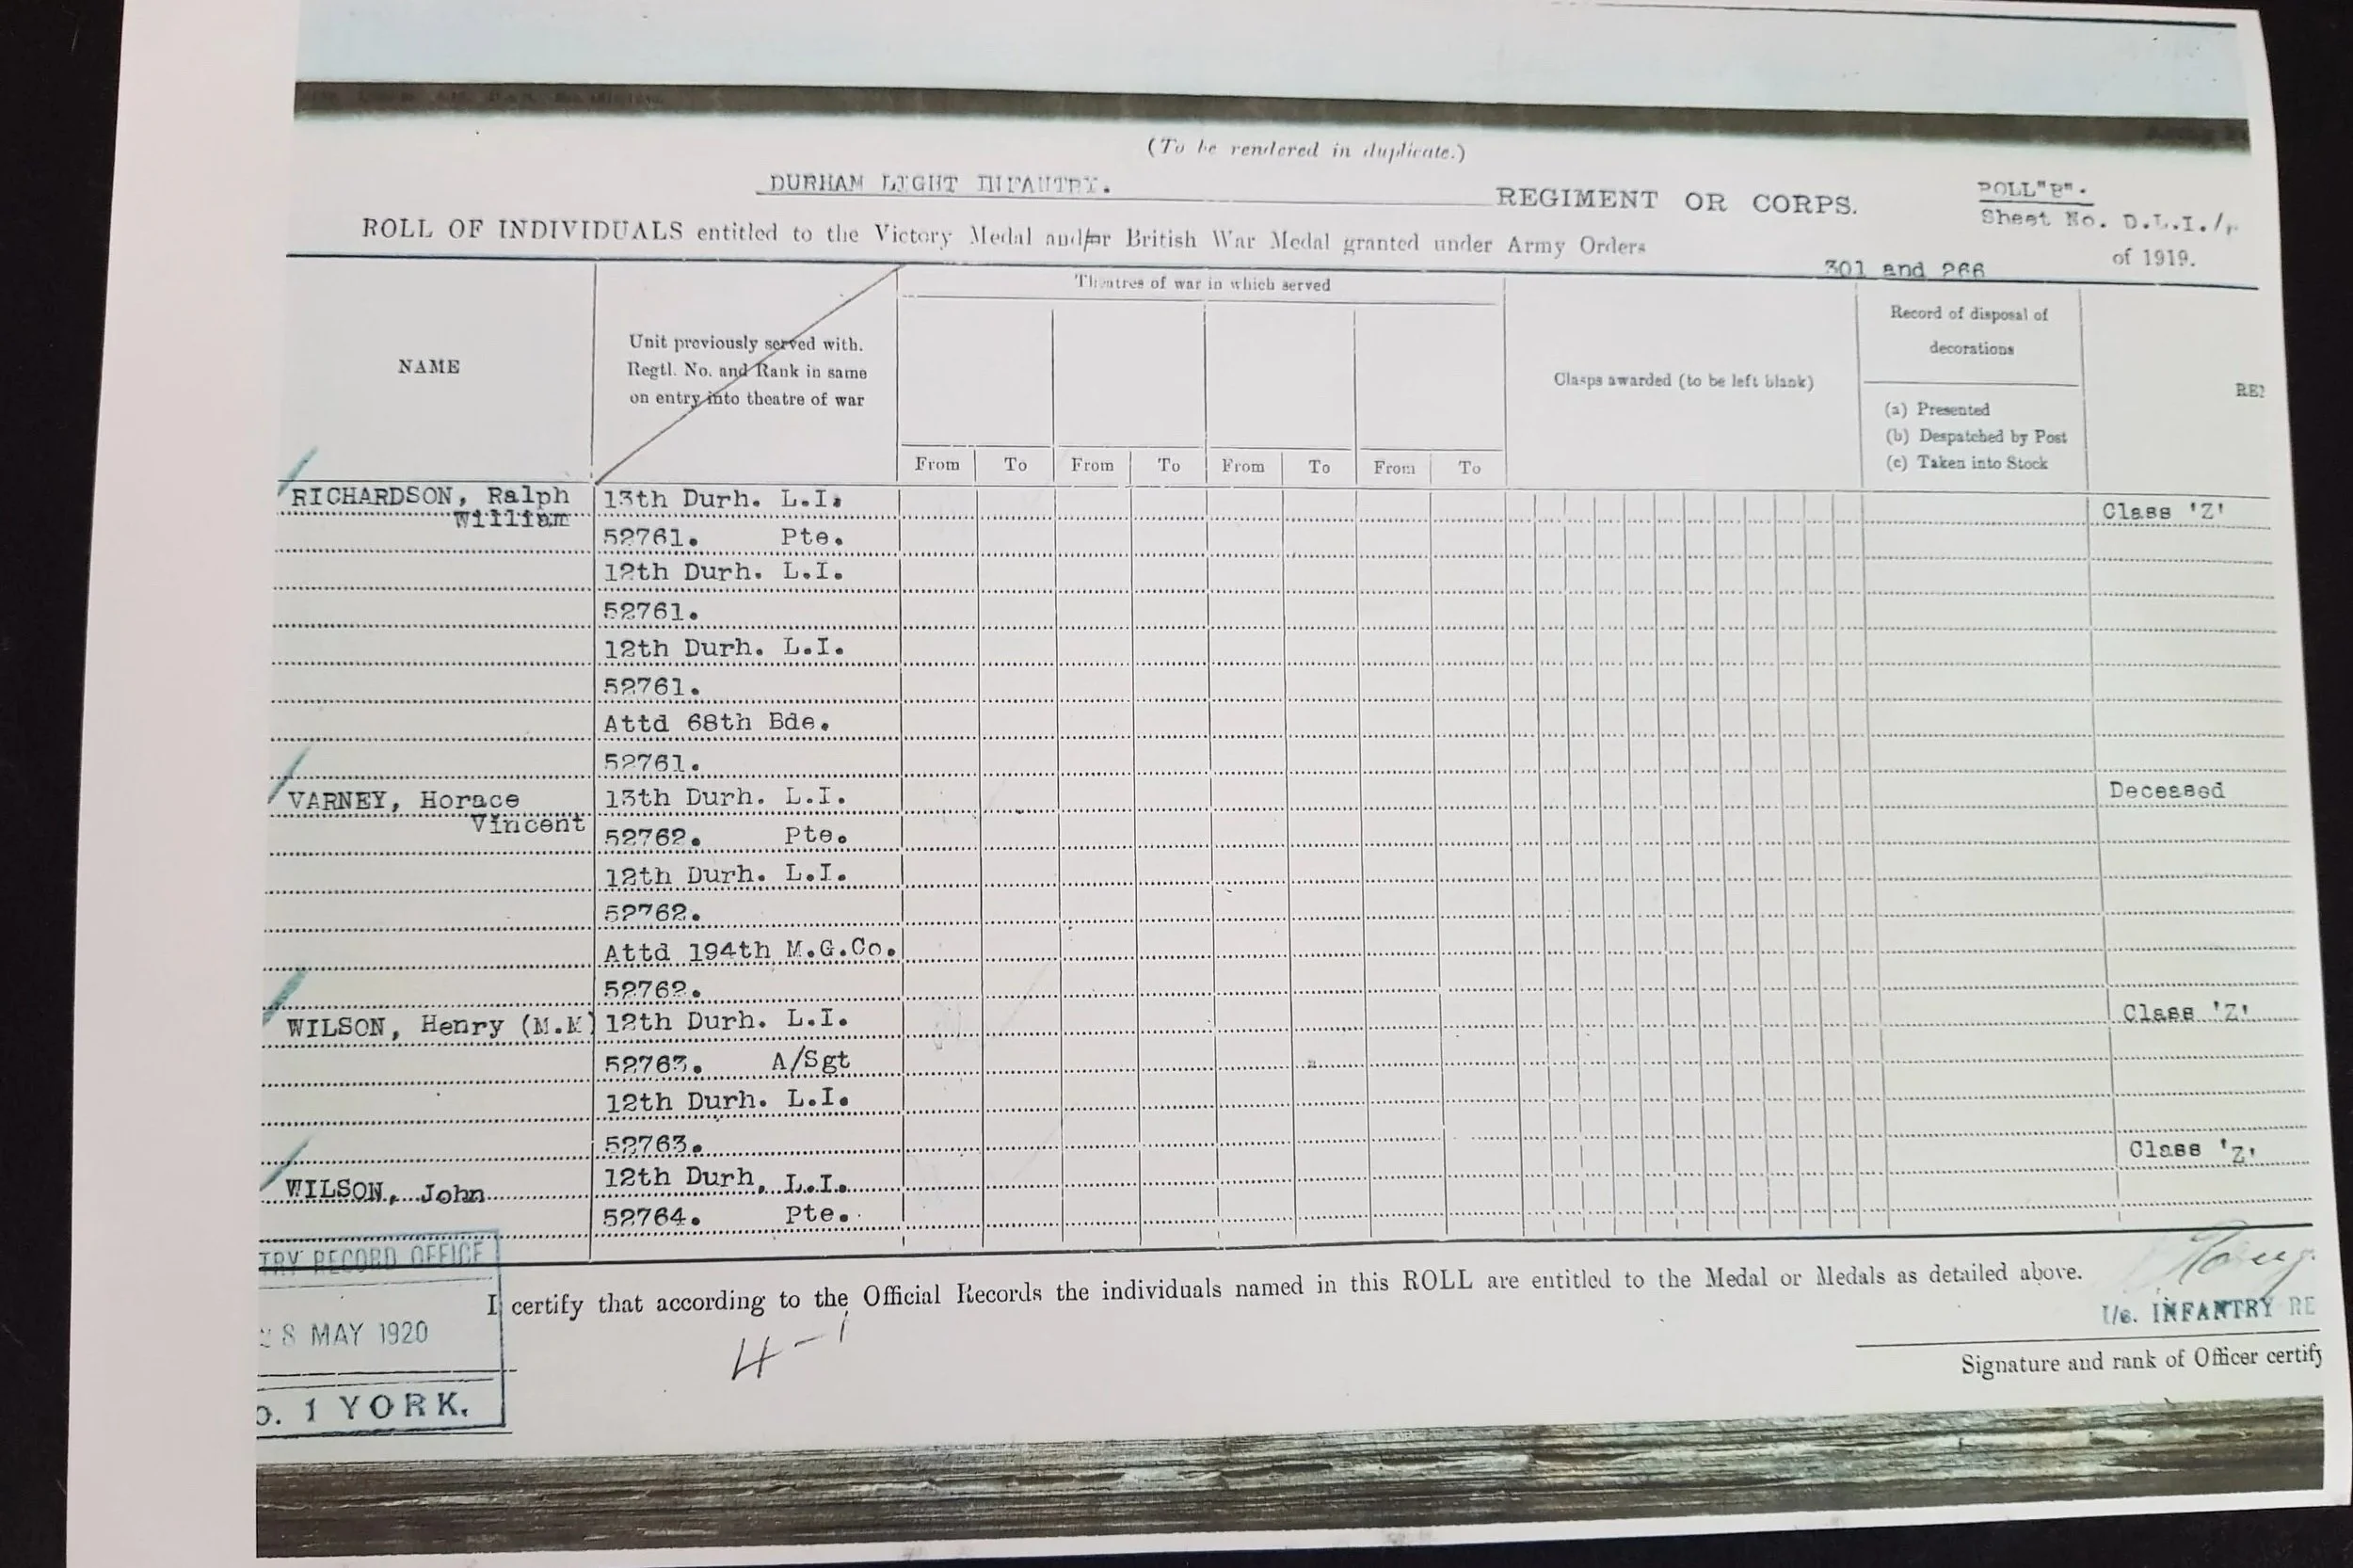 (To be rendered in duplicate.)
DURHAM LIGHT INFANTRY. REGIMENT OR CORPS.
ROLL "B".
Sheet No. D.L.I./
ROLL OF INDIVIDUALS entitled to the Victory Medal and/or British War Medal granted under Army Orders 301 and 266 of 1919.
NAME
Unit previously served with.
Regtl. No. and Rank in same
on entry into theatre of war
Theatres of war in which served
From To From To From To From To
Clasps awarded (to be left blank)
Record of disposal of
decorations
(a) Presented
(b) Despatched by Post
(c) Taken into Stock
RICHARDSON, Ralph 13th Durh. L.I. Class 'Z'
William
52761. Pte.
12th Durh. L.I.
52761.
12th Durh. L.I.
52761.
Attd 68th Bde.
52761.
VARNEY, Horace 13th Durh. L.I. Deceased
Vincent
52762. Pte.
12th Durh. L.I.
52762.
Attd 194th M.G.Co.
52762.
WILSON, Henry (M.M) 12th Durh. L.I. Class 'Z'
52763. A/Sgt
12th Durh. L.I.
52763.
WILSON, John 12th Durh. L.I. Class 'Z'
52764. Pte.
TRY RECORD OFFICE
I certify that according to the Official Records the individuals named in this ROLL are entitled to the Medal or Medals as detailed above.
I/c. INFANTRY RE
28 MAY 1920
4-1
Signature and rank of Officer certify
O. 1 YORK.